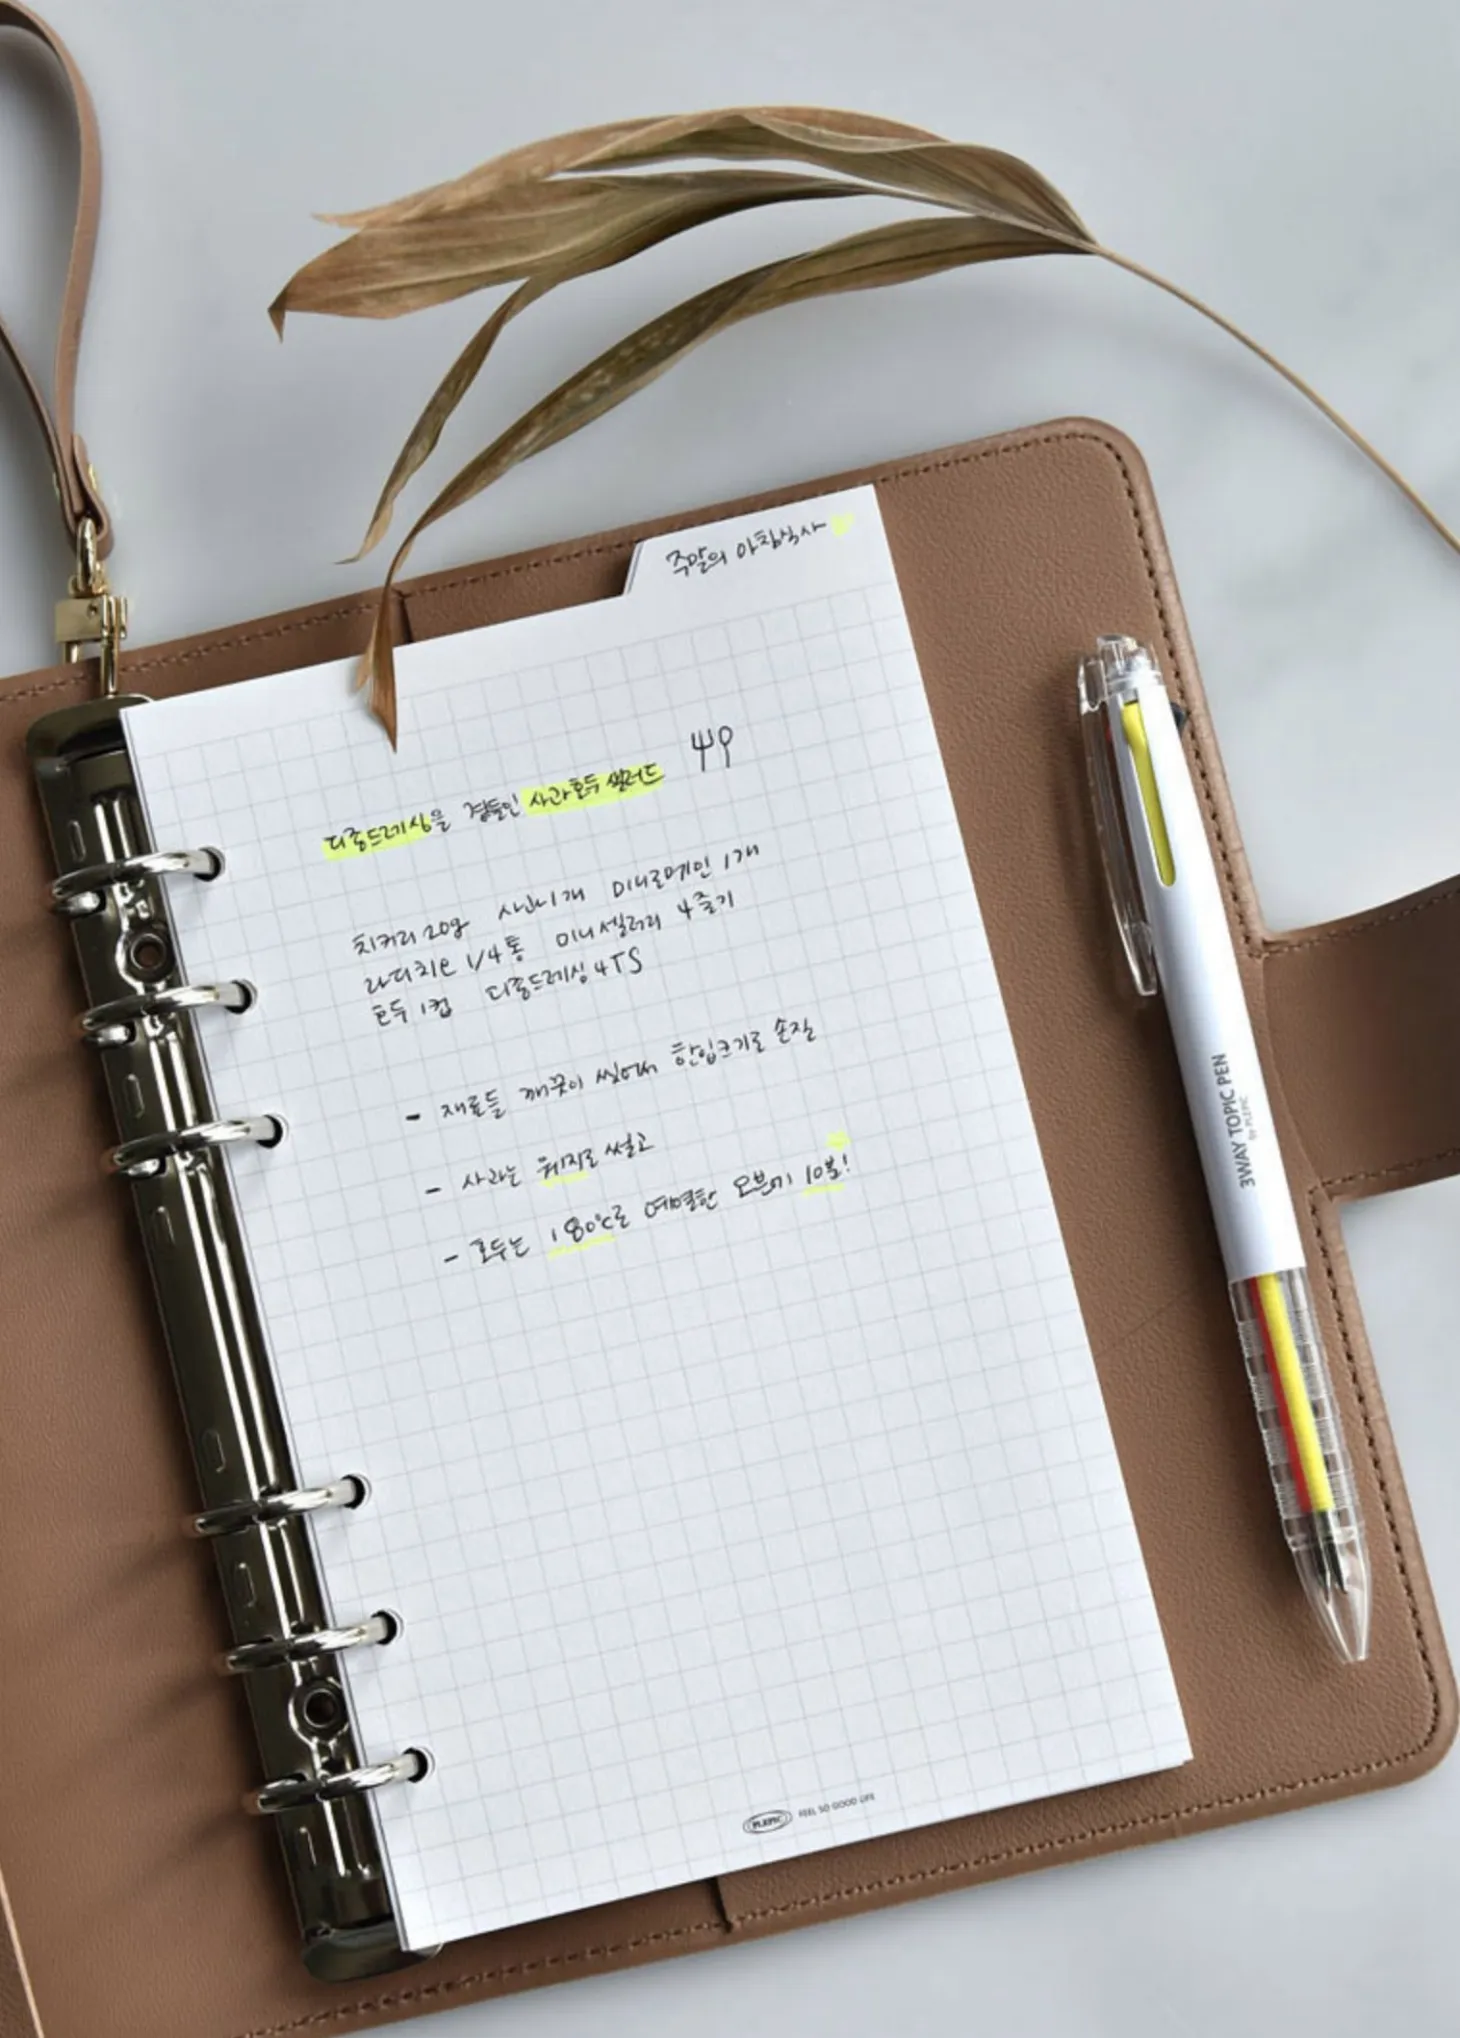 주말의 아침식사
디종드레싱을 곁들인 사과호두 샐러드
치커리 20g 사과 1개 미니로메인 1개
라디치오 1/4통 미니셀러리 4줄기
호두 1컵 디종드레싱 4TS
- 재료들 깨끗이 씻어서 한입크기로 손질
- 사과는 웨지로 썰고
- 호두는 180℃로 예열한 오븐에 10분!
PLEPIC FEEL SO GOOD LIFE
3WAY TOPIC PEN
by PLEPIC